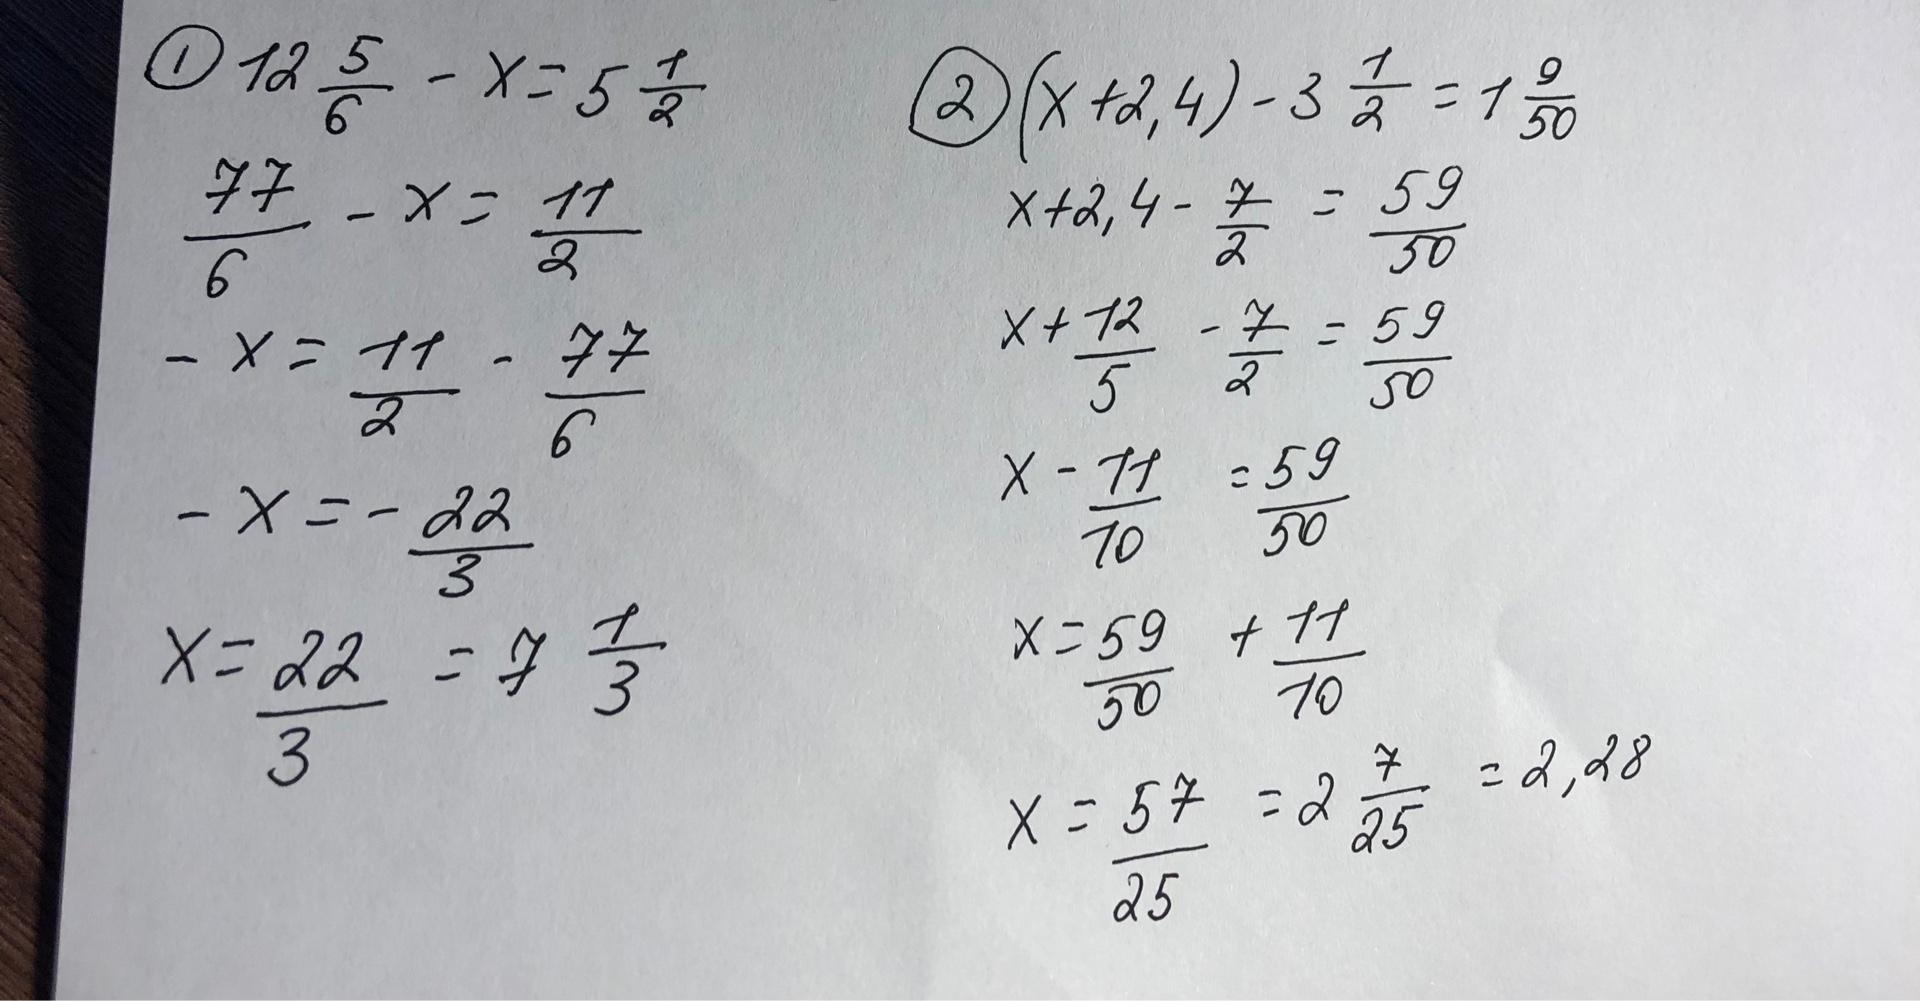 ① 12 5/6 - x = 5 1/2
77/6 - x = 11/2
- x = 11/2 - 77/6
- x = - 22/3
x = 22/3 = 7 1/3
② (x + 2,4) - 3 1/2 = 1 9/50
x + 2,4 - 7/2 = 59/50
x + 12/5 - 7/2 = 59/50
x - 11/10 = 59/50
x = 59/50 + 11/10
x = 57/25 = 2 7/25 = 2,28